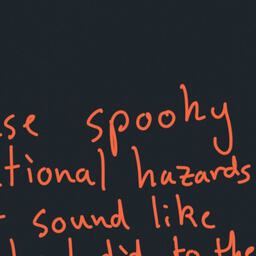 se spooky
tional hazards
sound like
to the